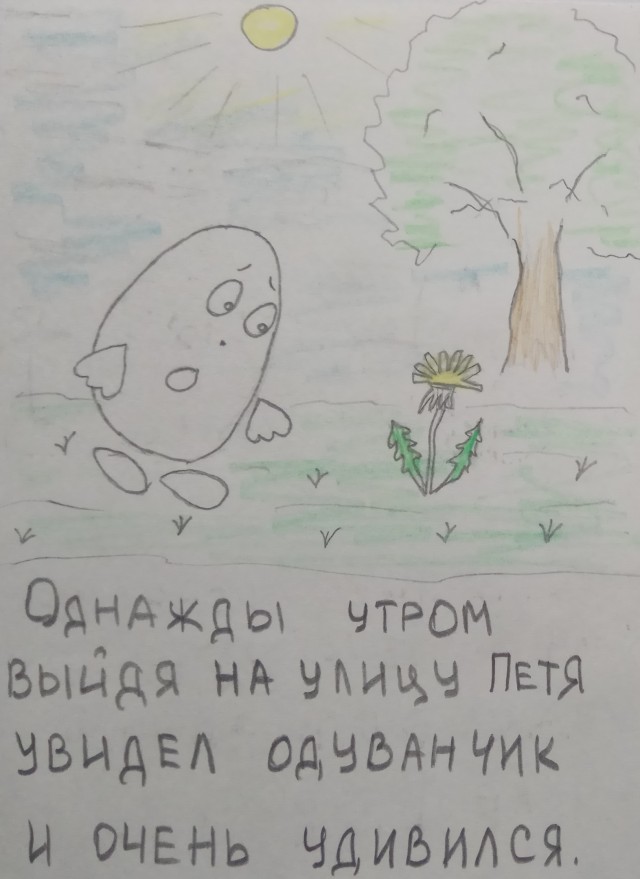 Однажды утром
выйдя на улицу Петя
увидел одуванчик
и очень удивился.